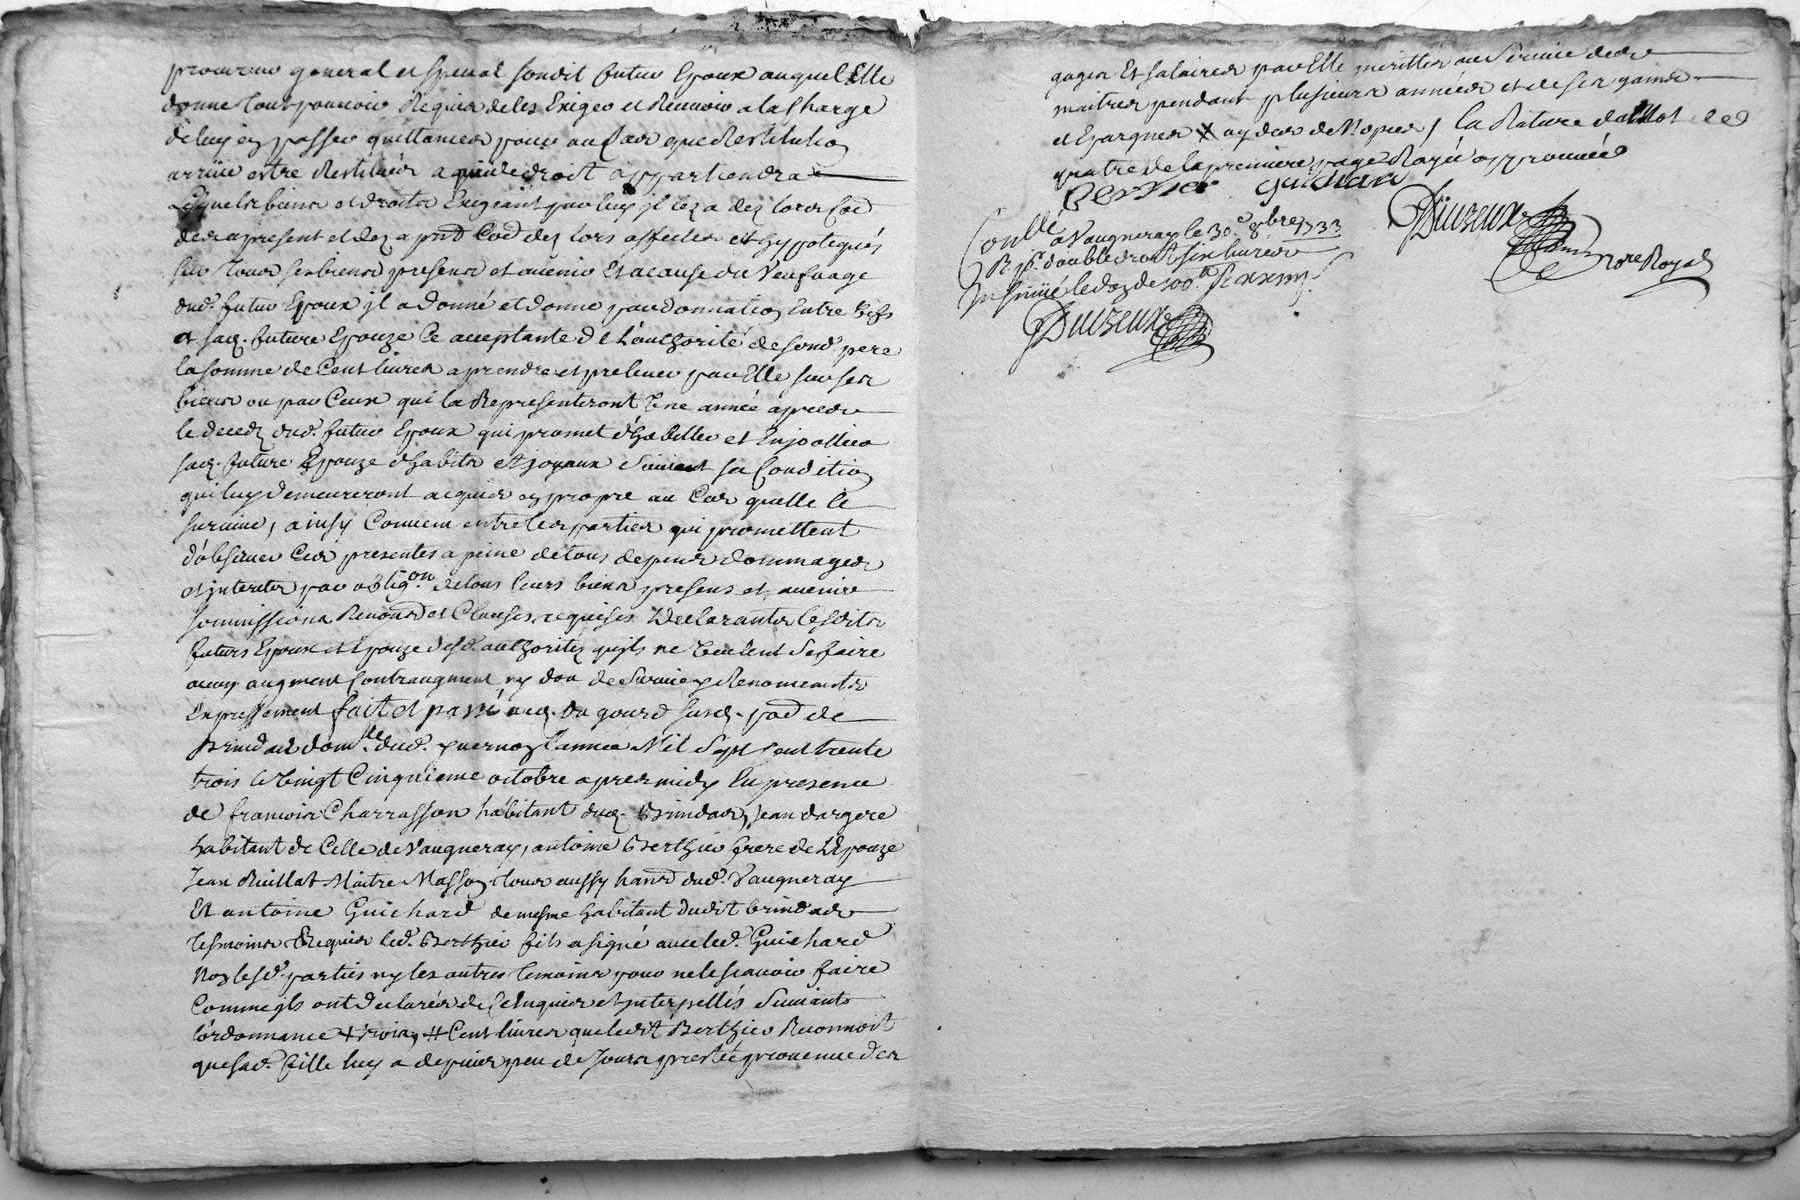 procureur general et special sondit futur Epoux auquel Elle
donne tout pouvoir Requis de les Exiger et Recevoir a la Charge
de luy en passer quittances pour au Cas que Restitution
arrive estre Restitués a qui de droit appartiendra
Lesquels biens et droits Exigeant par luy il les a dez lors Co͞e
dez apresent et dez apn͞t Co͞e dez lors affectes et hypotequés
sur tous ses biens presens et avenir Et a cause du Veufvage
dud. futur Epoux il a donné et donne par donnation Entre vifs
a sad. future Epouze Ce acceptante de L'authorité de sond. pere
la somme de Cent livres a prendre et prelever par Elle sur ses
biens ou par Ceux qui la Representeront Une année apres
le decedz dud. futur Epoux qui promet d'habiller et Enjoallier
sad. future Epouze d'habits et joyaux suivant sa Condition
qui luy demeureront acquis en propre au Cas quelle le
survive, ainsy Convenu entre les parties qui promettent
d'observer Ces presentes a peine de tous depens dommages
et interets par oblig.on de tous leurs biens presens et avenir
sommissions Renon͞ons et Clauses requises Declarants lesdits
futurs Epoux et Epouze desd. authorités qu'ils ne Veulent se faire
aucun augment Contraugment ny don de Survie y Renonceants
Expressement fait et passé aud. du gourd susd. par͞e de
brindas dom.lle dud. quernoz l'année Mil Sept Cent trente
trois le Vingt Cinquieme octobre apres midy En presence
de francois Charrasson habitant dud. Brindas, Jean dargere
habitant de Celle de Vaugneray, antoine Berthier frere de L'Epouze
Jean Ruillat Maitre Masson tous aussy hans dud. Vaugneray
Et antoine Guichard de mesme habitant dudit brindas
tesmoins Requis led. Berthier fils a signé avec led. Guichard
Non lesd. parties ny les autres temoins pour ne le scavoir faire
Comme ils ont declarés de Ce Enquis et interpellés Suivant
l'ordonnance + trois, # Cent livres que ledit Berthier Reconnoit
que sad. fille luy a depuis peu de Jours prestée provenue des
gages Et salaires par Elle merittés au Service de ses
maitres pendant plusieurs années et de ses gains
et Epargnes X ay dos de Nopces / la Rature du Mot
quatre de la premiere page Rayée approuvée
Bertier guichar
Duvzeux
Nore Royal
Conllé a Vaugneray le 30.e 8bre 1733
R ps. double droit six livres
Insinué led. jour
Duvzeux